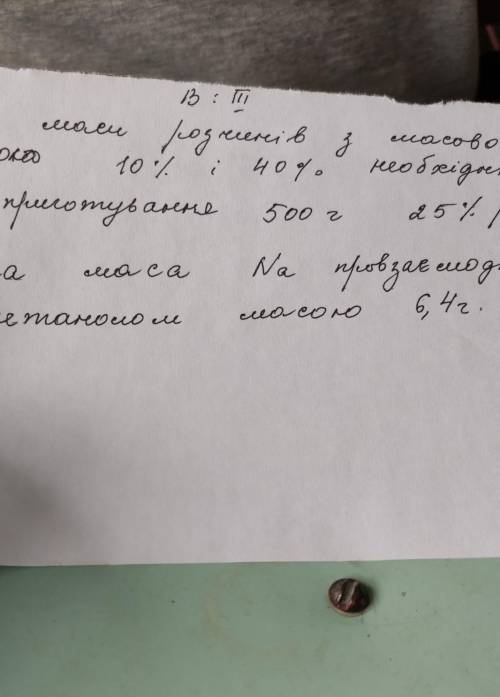 В : III
маси розчинів з масово
10% і 40% необхідн
приготування 500 г 25%
а маса Na провзаємод
етанолом масою 6,4г.